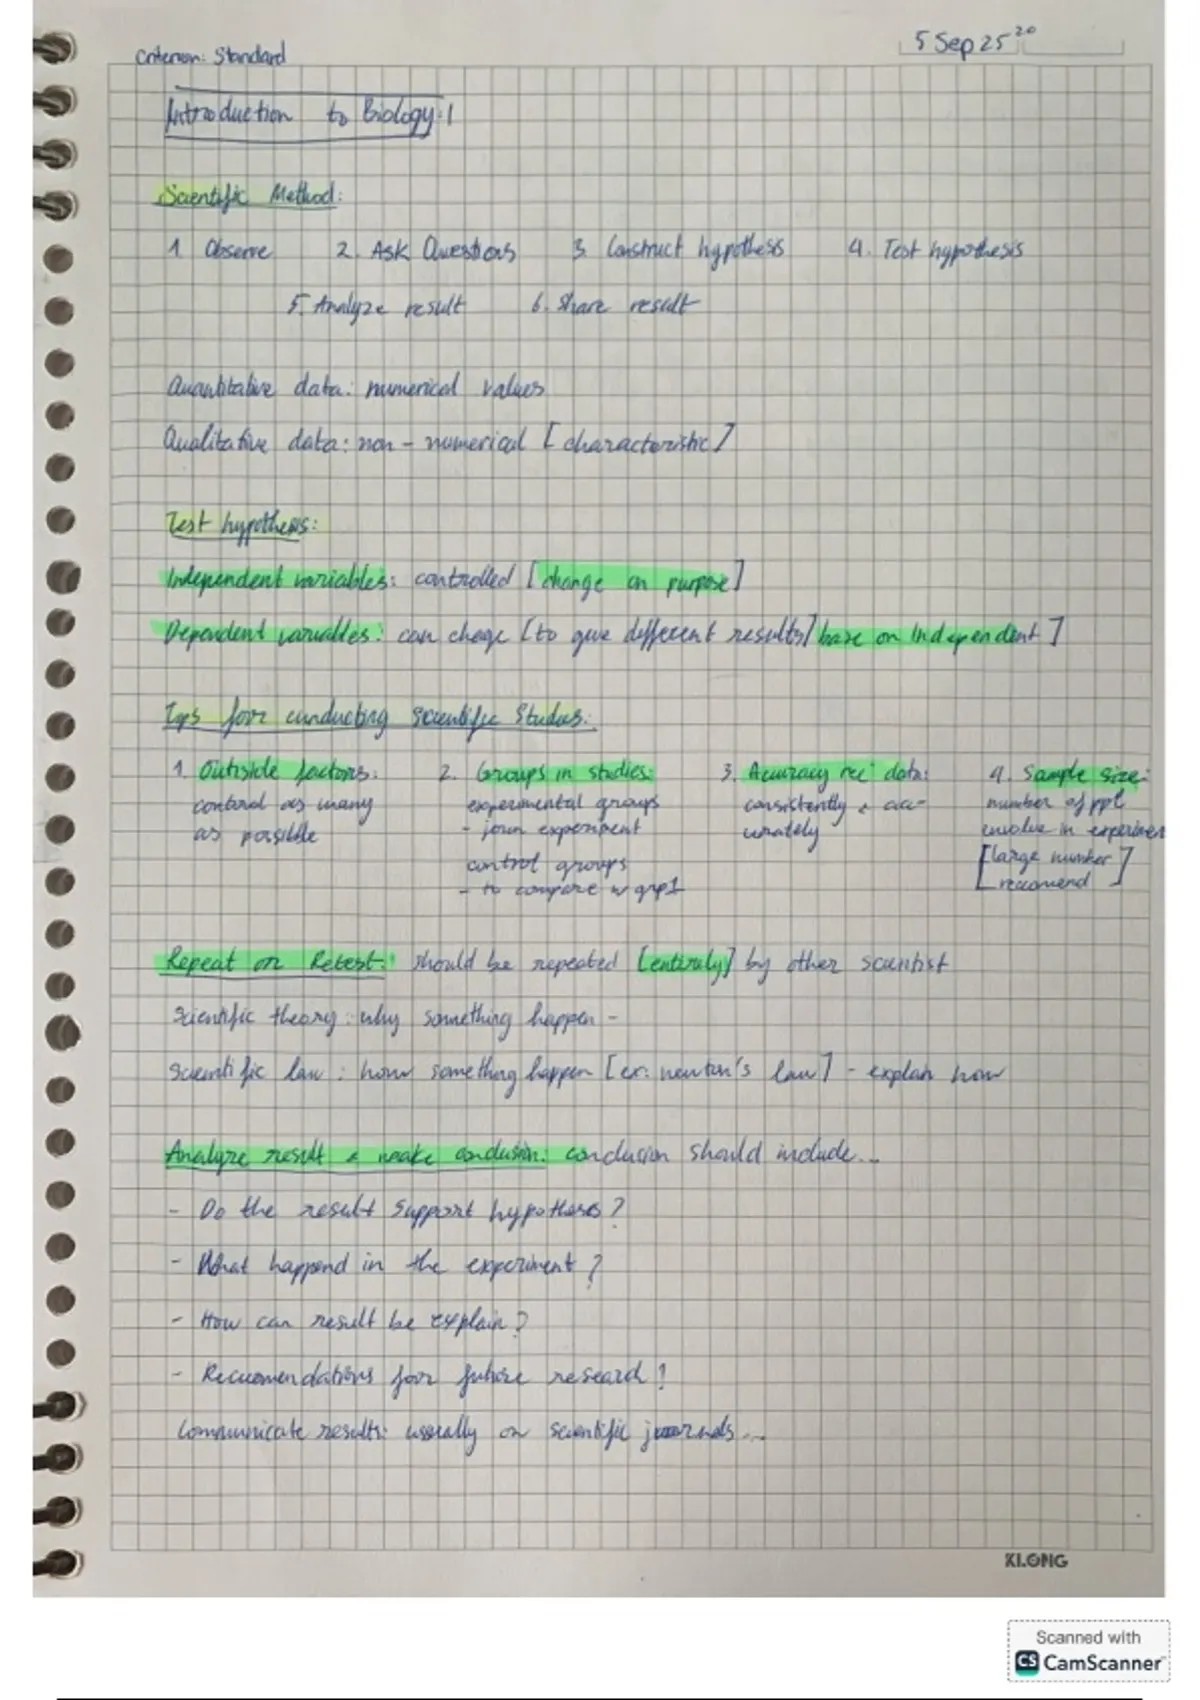 Criterion: Standard
5 Sep 25 20
Introduction to Biology: 1
Scientific Method:
1. Observe 2. Ask Questions 3. Construct hypothesis 4. Test hypothesis
5. Analyze result 6. Share result
Quantitative data: numerical values
Qualitative data: non - numerical [characteristic]
Test hypothesis:
Independent variables: controlled [change on purpose]
Dependent variables: can chage [to give different results/ base on Independent]
Tips for conducting scientific Studies:
1. Outiside factors:
control as many
as possible
2. Groups in studies:
experimental groups
- join experiment
control groups
- to compare w grp1
3. Accuracy rec' data:
consistently & acc-
urately
4. Sample size:
number of ppl
involve in experimen
[large number
reccomend]
Repeat or Retest: should be repeated [entirely] by other scientist
Scientific theory: why something happen -
Scientific law: how something happen [ex: newton's law] - explain how
Analyze result & make conclusion: conclusion should include...
- Do the result support hypotheses?
- What happend in the experiment?
- How can result be explain?
- Reccomendations for future research?
Communicate results: usually on scientific journals...
KLONG
Scanned with
CS CamScanner